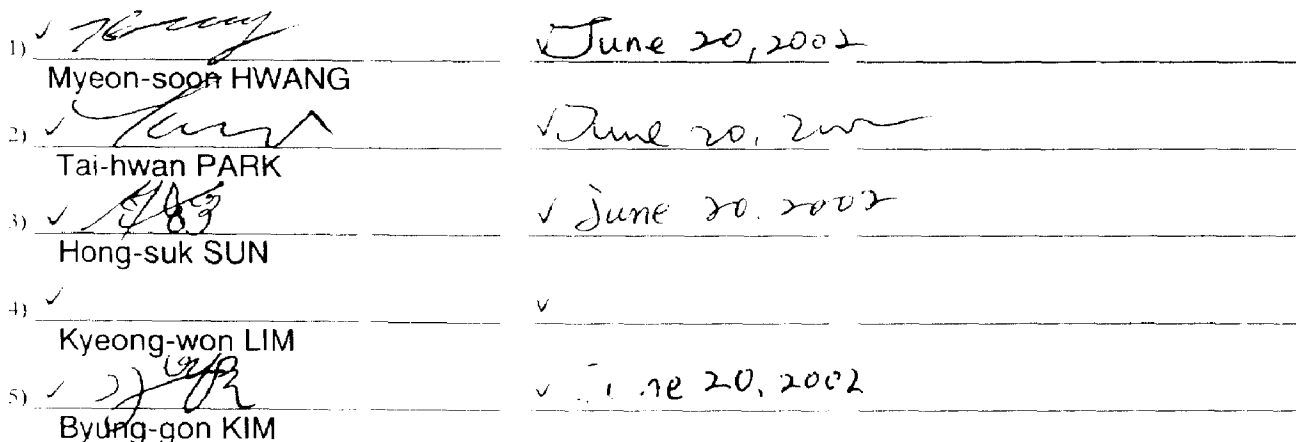 1) ✓ June 20, 2002
Myeon-soon HWANG
2) ✓ June 20,
Tai-hwan PARK
3) ✓ June 20. 2002
Hong-suk SUN
4) ✓
Kyeong-won LIM
5) ✓ 20, 2002
Byung-gon KIM